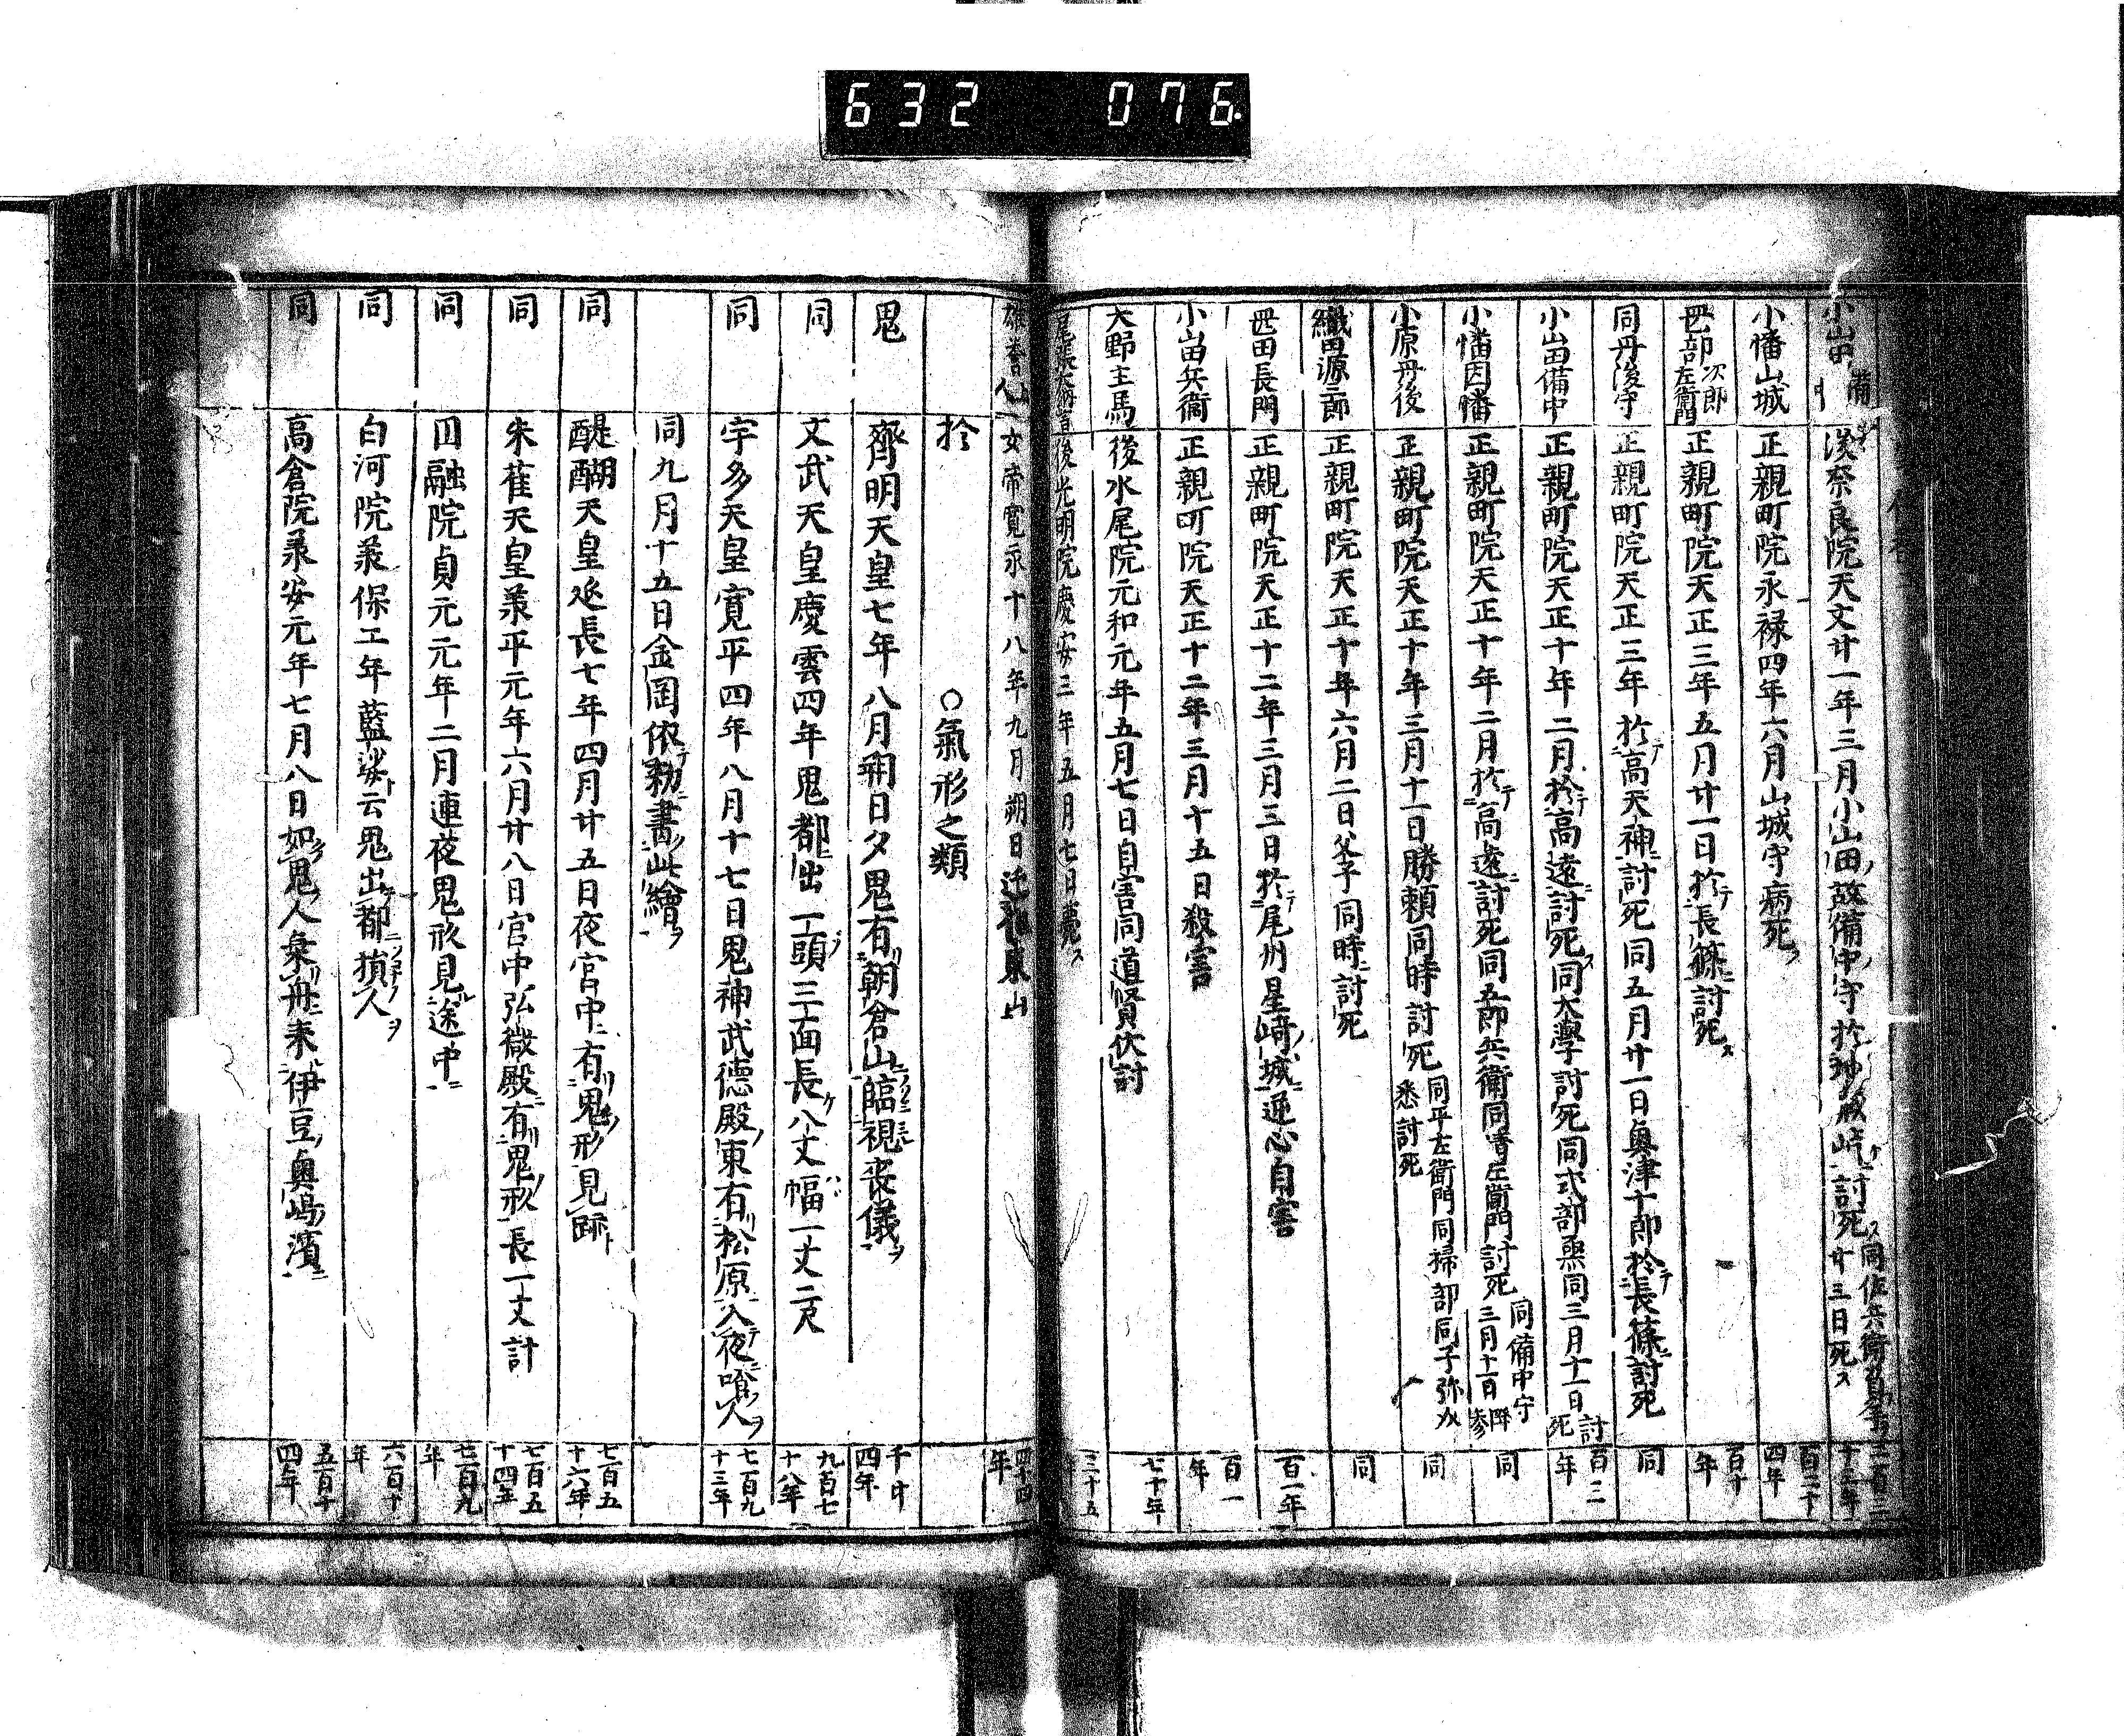 632 076.
小山田備 後奈良院天文廿一年三月小山田故備中守於地蔵峠討死 同佐兵衛 廿三日死ス 百三十三年
小幡山城 正親町院永禄四年六月山城守病死ス 百二十四年
岡部次郎左衛門 正親町院天正三年五月廿一日於テ長篠ニ討死ス 百十年
同丹後守 正親町院天正三年於テ高天神ニ討死同五月廿一日奥津十郎於テ長篠ニ討死 同
小山田備中 正親町院天正十年二月於テ高遠ニ討死ス同大學討死同式部無同三月十一日討死 百三年
小幡因幡 正親町院天正十年二月於テ高遠ニ討死同五郎兵衛同清左衛門討死 同備中守三月十一日 同
小原丹後 正親町院天正十年三月十一日勝頼同時討死 同平左衛門同掃部同子弥 悉討死 同
織田源三郎 正親町院天正十年六月二日父子同時ニ討死 同
岡田長門 正親町院天正十二年三月三日於テ尾州星﨑ノ城ニ逆心自害 百一年
小山田兵衛 正親町院天正十二年三月十五日殺害 百一年
大野主馬 後水尾院元和元年五月七日自害同道賢伏討 七十年
尾張大納言 後光明院慶安三年五月七日薨ス 三十五
雄誉上人 女帝寛永十八年九月朔日迁化東山 四十四年
於
○氣形之類
鬼 齊明天皇七年八月朔日夕鬼有リ朝倉山ニ臨視喪儀ヲ 千廿四年
同 文武天皇慶雲四年鬼都ニ出一頭三面長ケ八丈幅ハヾ一丈二尺 九百七十八年
同 宇多天皇寛平四年八月十七日鬼神武德殿ノ東有リ松原ニ入テ夜ニ喰フ人ヲ 七百九十三年
同九月十五日金岡依テ勅ニ書ク此繪ヲ
同 醍醐天皇延長七年四月廿五日夜宮中ニ有リ鬼ノ形見跡ト 七百五十六年
同 朱雀天皇羕平元年六月廿八日宮中弘徽殿ニ有リ鬼ノ形長一丈計 七百五十四年
同 囙融院貞元元年二月連夜鬼形見ル途中ニ 七百九年
同 白河院羕保二年藍婆ト云鬼出テ都ニ損フ人ヲ 六百十年
同 高倉院羕安元年七月八日如ク鬼ノ人乗リ舟ニ来伊豆ノ奥嶋ノ濱ニ 五百十四年